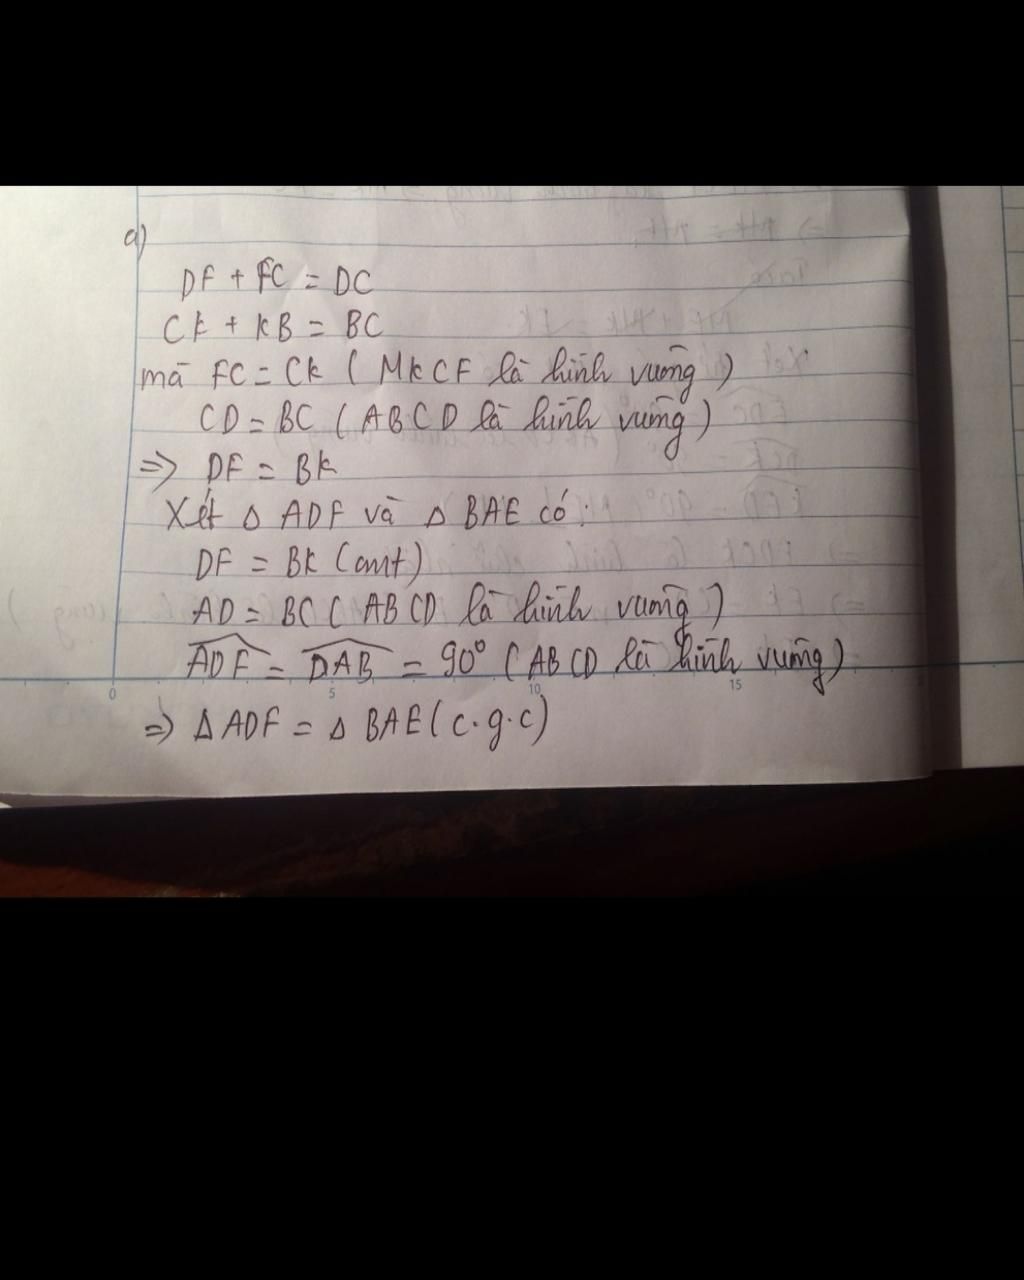 a)
DF + FC = DC
CK + KB = BC
mà FC = CK ( MKCF là hình vuông )
CD = BC ( ABCD là hình vuông )
=> DF = BK
Xét Δ ADF và Δ BAE có:
DF = BK (cmt)
AD = BC ( ABCD là hình vuông )
ADF = DAB = 90° ( ABCD là hình vuông )
0 5 10 15
=> Δ ADF = Δ BAE ( c.g.c )